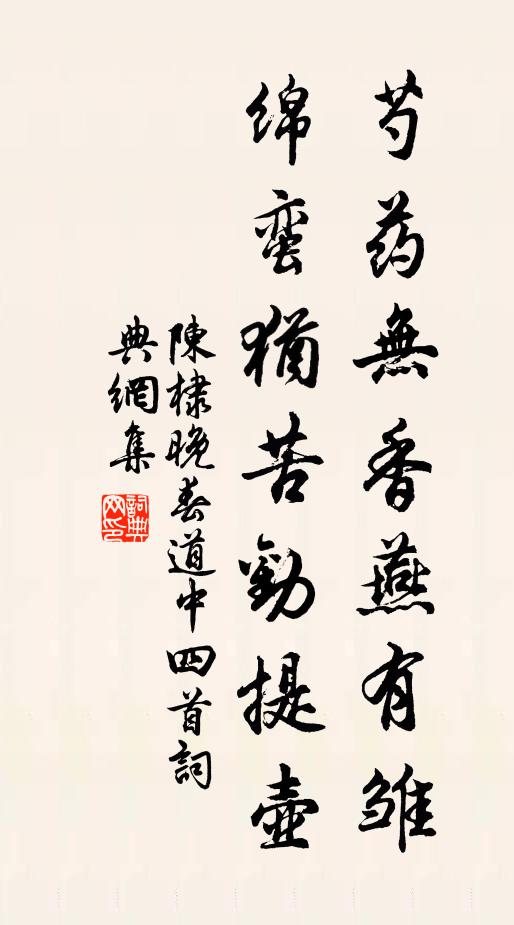 芍药無香燕有雏
绵蛮猶苦勸提壺
陳棣晚春道中四首詞
典網集
詞典网印